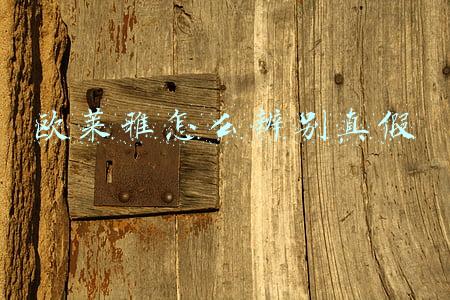 欧莱雅怎么辨别真假